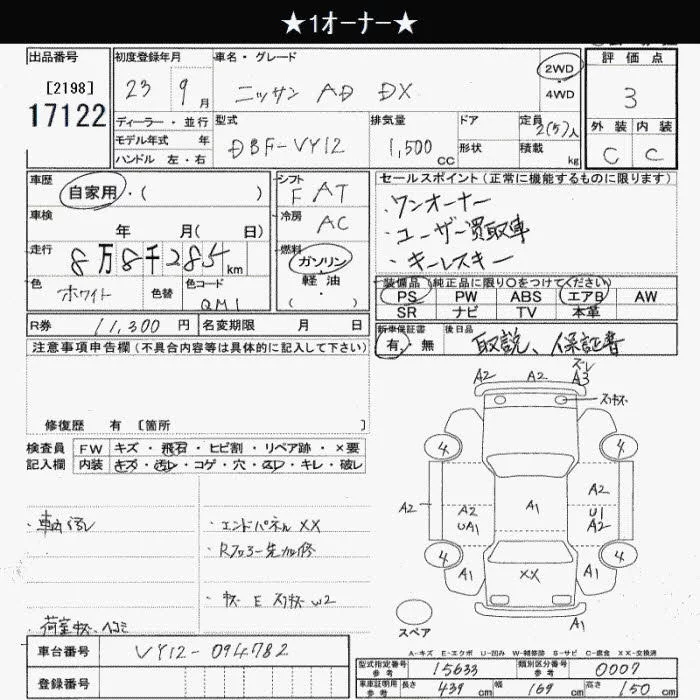 ★1オーナー★
出品番号
[2198]
17122
初度登録年月
23 9月
車名・グレード
ニッサン AD DX
2WD
・
4WD
評価点
3
外装 内装
C C
ディーラー・並行
モデル年式 年
ハンドル 左・右
型式
DBF-VY12
排気量
1,500 CC
ドア
形状
定員 2(5)人
積載 kg
車歴
自家用・( )
車検
年 月( 日)
走行
8万8千285km
色
ホワイト
色替
色コード
QM1
シフト
F AT
冷房
AC
燃料
ガソリン
・
軽油
・
( )
セールスポイント(正常に機能するものに限ります)
・ワンオーナー
・ユーザー買取車
・キーレスキー
装備品(純正品に限り○をつけてください)
PS PW ABS エアB AW
SR ナビ TV 本革
R券 11,300円 名変期限 月 日
新車保証書
有・無
後日品
取説、保証書
注意事項申告欄(不具合内容等は具体的に記入して下さい)
修復歴 有 [箇所 ]
検査員
記入欄
FW キズ・飛石・ヒビ割・リペア跡・×要
内装 キズ・汚レ・コゲ・穴・スレ・キレ・破レ
・エンドパネル XX
・キズ E スリキズ W2
A2 A2 A3
スリキズ
4 4
A2 A2 UA1 A1 A2 U1 A2
4 4
A1 XX A1
A1
スペア
A-キズ E-エクボ U-凹み W-補修跡 S-サビ C-腐食 XX-交換済
車台番号 VY12-094782
登録番号
型式指定番号 参考 15633 類別区分番号 参考 0007
車車証明用 参考 長さ 439cm 幅 169cm 高さ 150cm